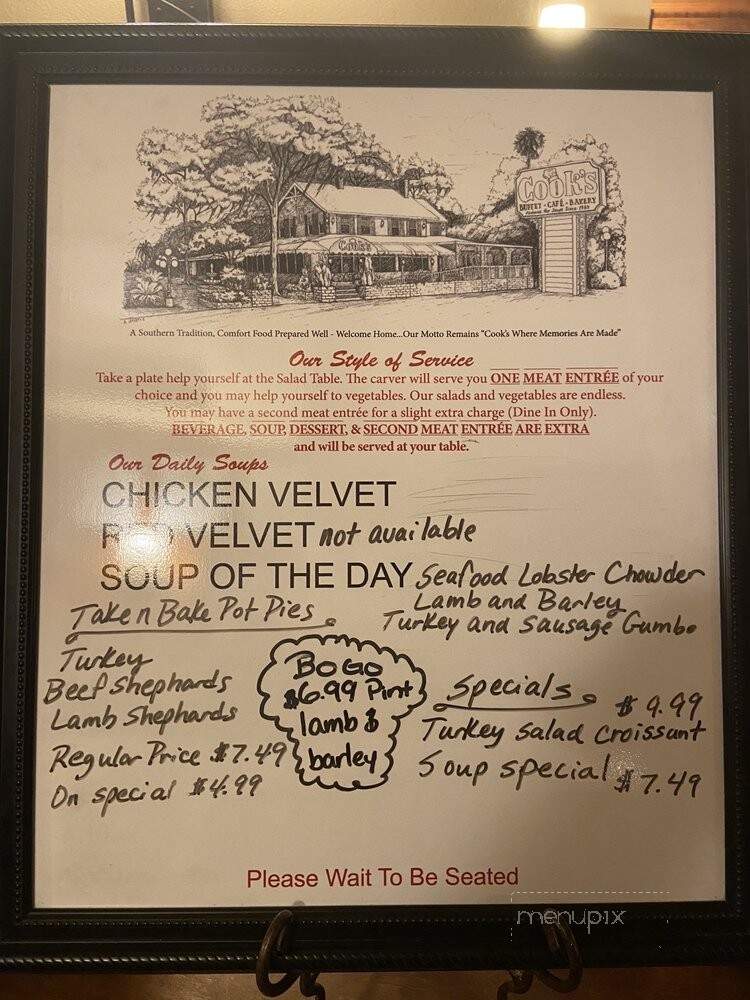 Cook's
BUFFET - CAFÉ - BAKERY
Cook's
A Southern Tradition, Comfort Food Prepared Well - Welcome Home...Our Motto Remains "Cook's Where Memories Are Made"
Our Style of Service
Take a plate help yourself at the Salad Table. The carver will serve you ONE MEAT ENTRÉE of your
choice and you may help yourself to vegetables. Our salads and vegetables are endless.
You may have a second meat entrée for a slight extra charge (Dine In Only).
BEVERAGE, SOUP, DESSERT, & SECOND MEAT ENTRÉE ARE EXTRA
and will be served at your table.
Our Daily Soups
CHICKEN VELVET
RED VELVET not available
SOUP OF THE DAY Seafood Lobster Chowder
Lamb and Barley
Turkey and Sausage Gumbo
Take n Bake Pot Pies
Turkey
Beef Shephards
Lamb Shephards
Regular Price $7.49
On special $4.99
BOGO
$6.99 Pint
lamb &
barley
Specials
$9.99
Turkey Salad Croissant
Soup special $7.49
Please Wait To Be Seated
menupix